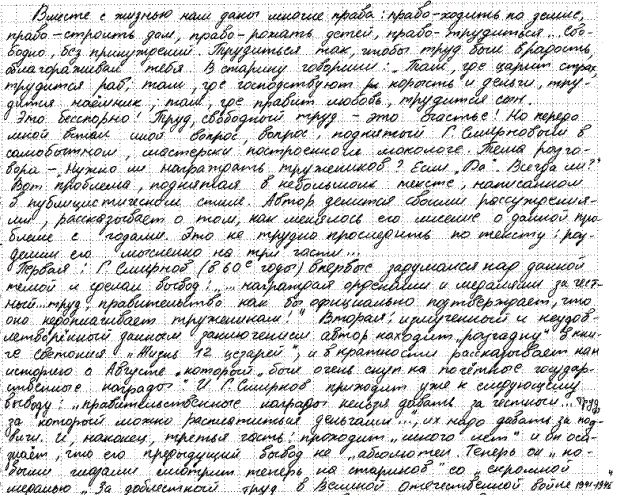 Вместе с жизнью нам даны многие права: право-ходить по земле,
право-строить дом, право-рожать детей, право-трудиться... Сво-
бодно, без принуждений. Трудиться так, чтобы труд был в радость,
облагораживал тебя. В старину говорили: „Там, где царит страх,
трудится раб; там, где господствуют корысть и деньги, тру-
дится наёмник; там, где правит любовь, трудится сын.
Это бесспорно! Труд, свободный труд - это счастье! Но передо
мной встал иной вопрос, вопрос, поднятый Г. Смирновым в
самобытном, мастерски построенном монологе. Тема разго-
вора - „Нужно ли награждать тружеников? Если „Да". Всегда ли?"
Вот проблема, поднятая в небольшом тексте, написанном
в публицистическом стиле. Автор делится своими рассуждения-
ми, рассказывает о том, как менялось его мнение о данной про
блеме с годами. Это не трудно проследить по тексту: раз-
делим его мысленно на три части...
Первая: Г. Смирнов (в 60е годы) впервые задумался над данной
темой и сделал вывод: „... награждая орденами и медалями за чест-
ный... труд, правительство как бы официально подтверждает, что
оно недоплачивает труженикам!" Вторая: измученный и неудов-
летворённый данным заключением автор находит „разгадку" в кни-
ге Светония „Жизнь 12 цезарей", и в кратности рассказывает нам
историю о Августе „который „был очень скуп на почётные государ-
ственные награды" И Г. Смирнов приходит уже к следующему
выводу: „правительственные награды нельзя давать за честный... труд,
за который можно расплатиться деньгами...", их надо давать за под-
виги. И, наконец, третья часть: проходит „много лет" и он осо-
знаёт, что его предыдущий вывод не „абсолютен. Теперь он „но-
выми глазами смотрит теперь на стариков" со „скромной
медалью „За доблестный труд в Великой Отечественной войне 1941-1945"